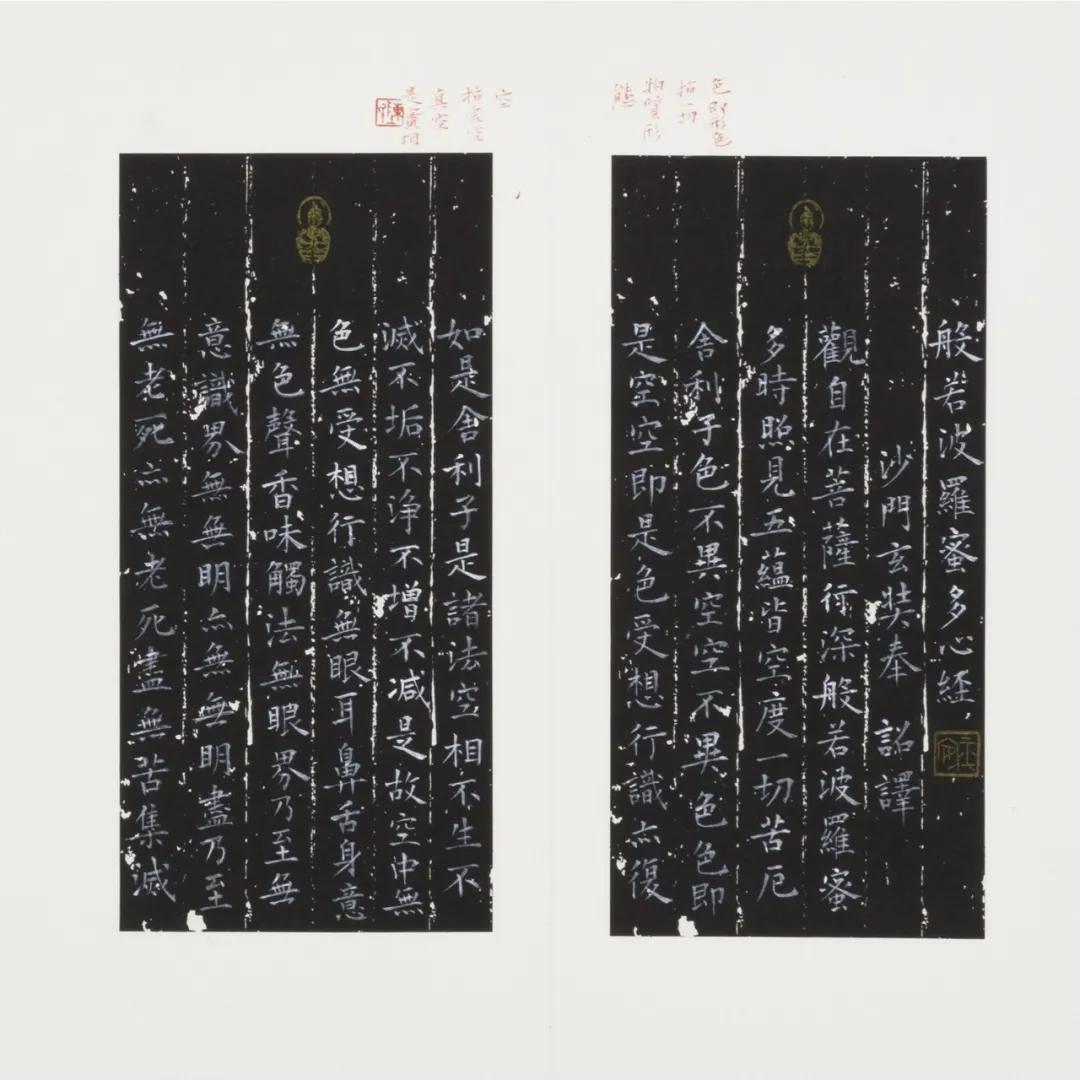 色即形色
指一切
物質形
態
般若波羅蜜多心経
沙門玄奘奉 詔譯
觀自在菩薩行深般若波羅蜜
多時照見五蘊皆空度一切苦厄
舍利子色不異空空不異色色即
是空空即是色受想行識亦復
空
指虛空
真空
是實相
如是舍利子是諸法空相不生不
滅不垢不浄不增不減是故空中無
色無受想行識無眼耳鼻舌身意
無色聲香味觸法無眼界乃至無
意識界無無明亦無無明盡乃至
無老死亦無老死盡無苦集滅